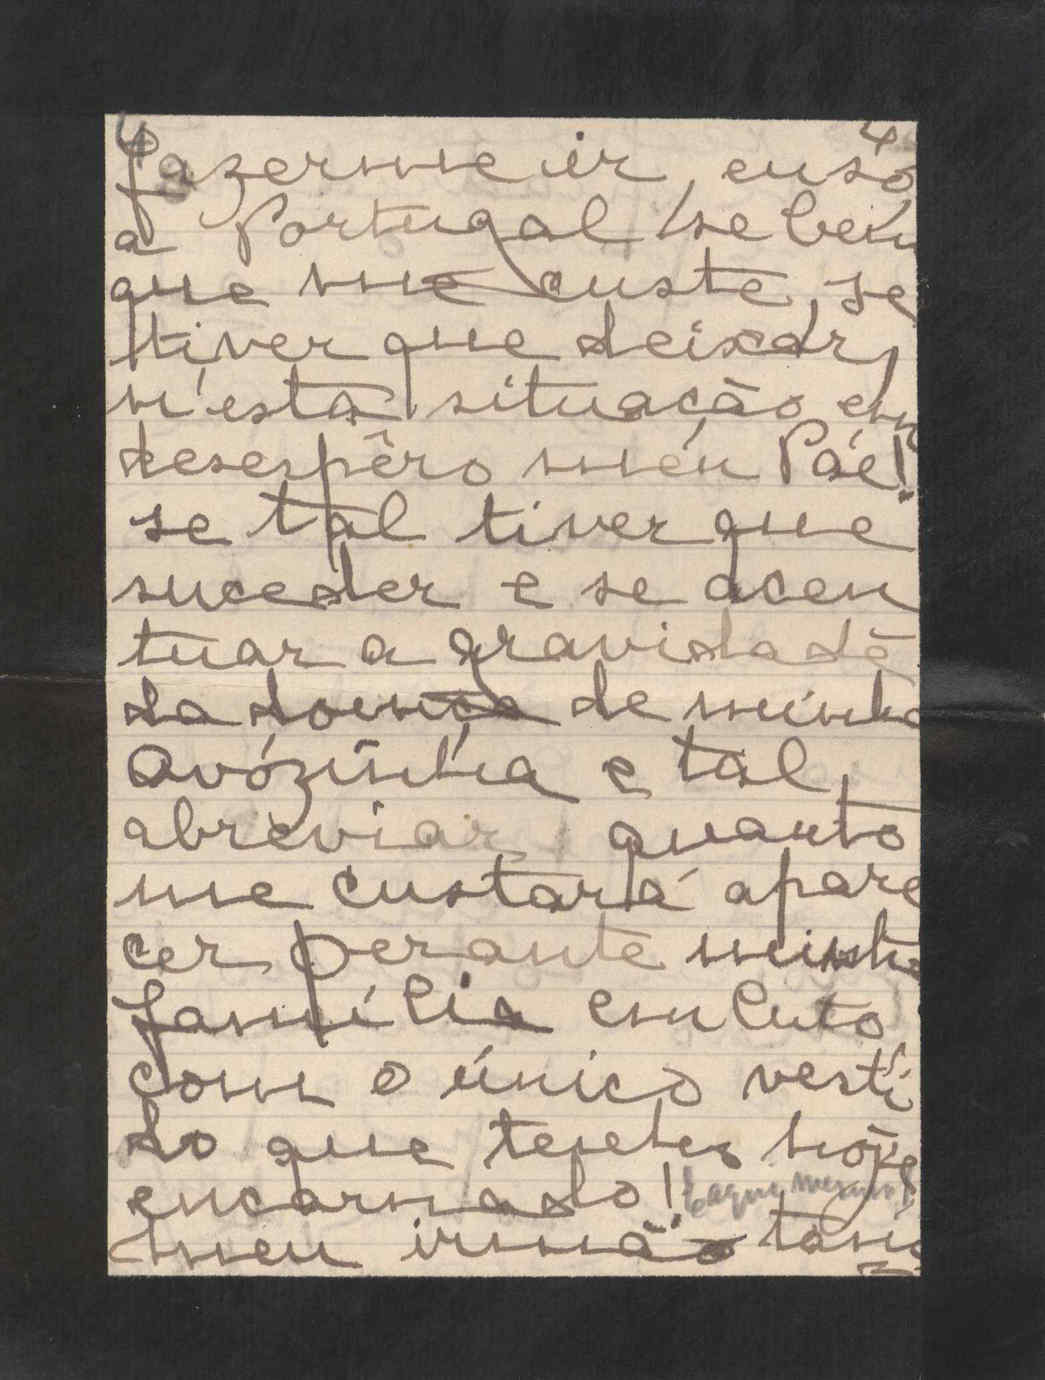 4 4
fazerme ir, eu só,
a Portugal, se bem
que me custe, se
tiver que deixar,
n'esta situação em
desespêro meu Páe!
se tal tiver que
suceder e se acen
tuar a gravidade
da doença de minha
avózinha e tal
abreviar, quanto
me custará apare
cer perante minha
família em luto
com o único vesti
do que tenho hoje
encarnado! E aqui mesmo!
meu irmão tam